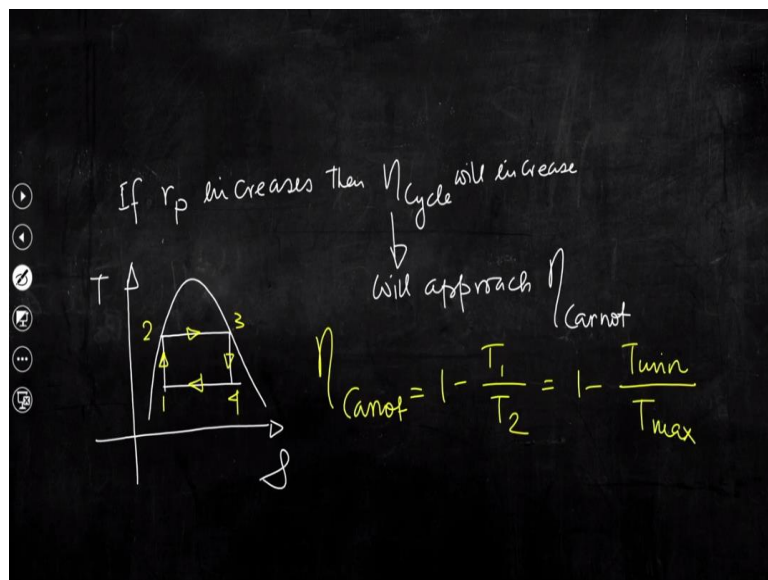 If rp increases then ηcycle will increase
will approach ηCarnot
T
2
3
1
4
S
ηCarnot = 1 - T1/T2 = 1 - Tmin/Tmax